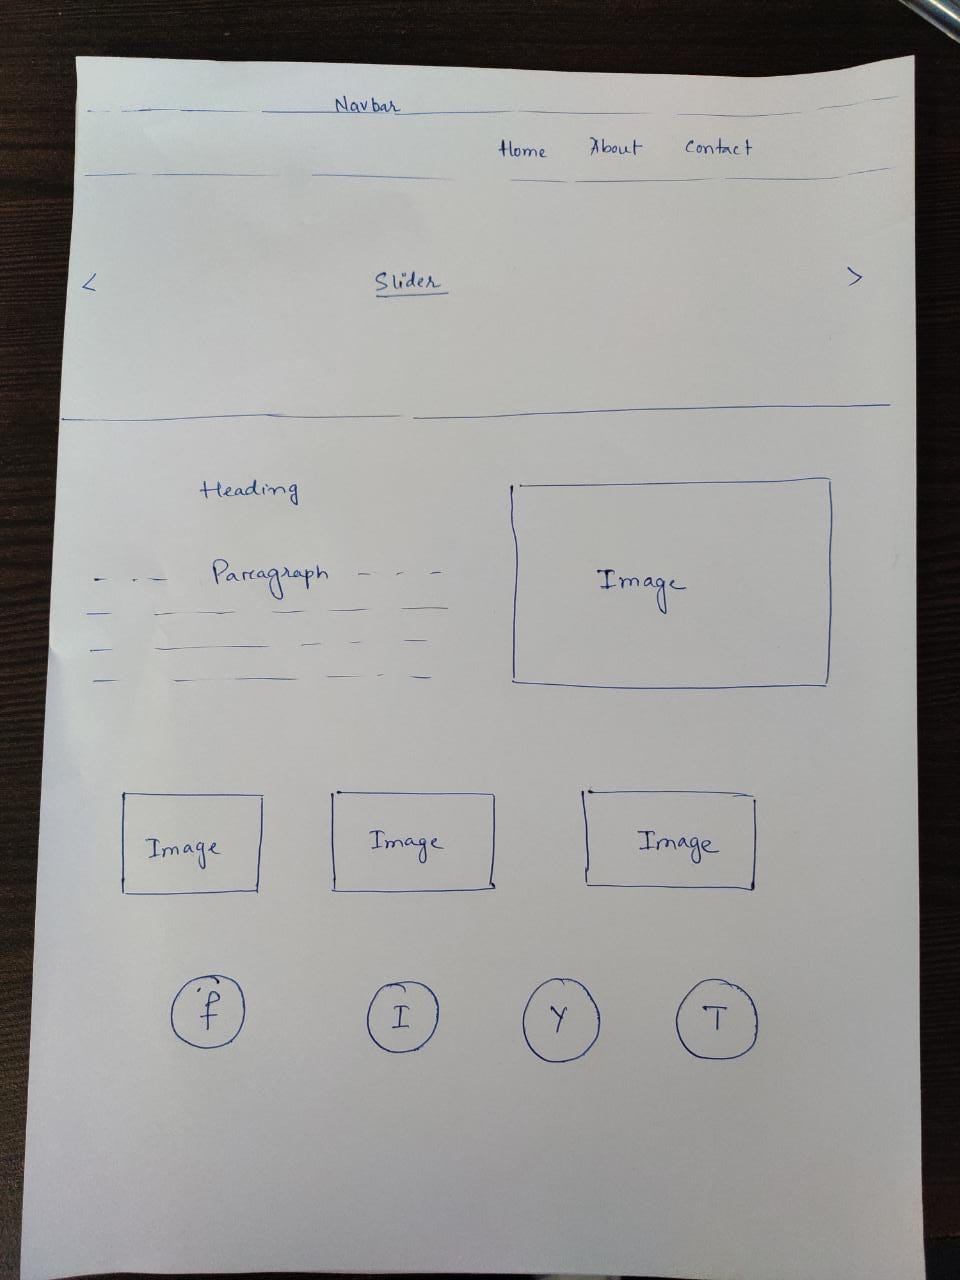 Navbar
Home About Contact
< Slider >
Heading
Paragraph
Image
Image Image Image
f I Y T